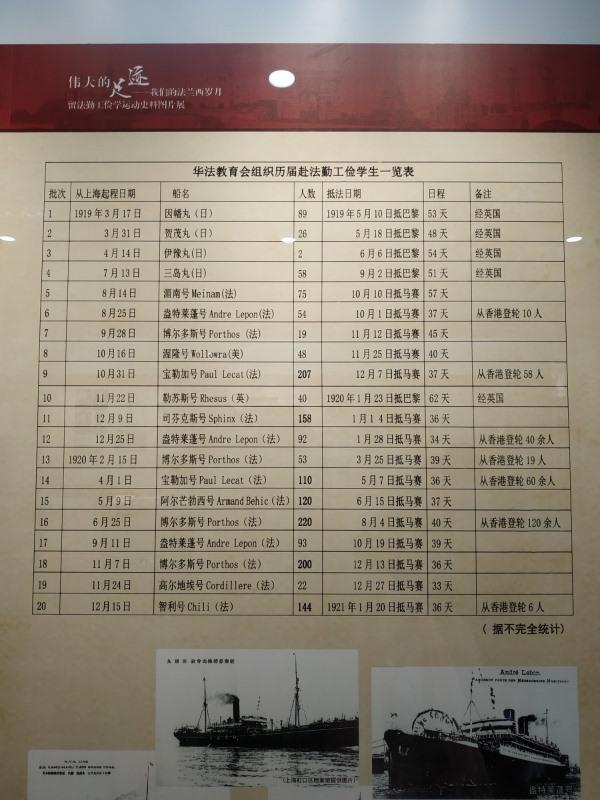 伟大的足迹
——我们的法兰西岁月
留法勤工俭学运动史料图片展
华法教育会组织历届赴法勤工俭学生一览表
批次 从上海起程日期 船名 人数 抵法日期 日程 备注
1 1919年3月17日 因幡丸（日） 89 1919年5月10日抵巴黎 53天 经英国
2 3月31日 贺茂丸（日） 26 5月18日抵巴黎 48天 经英国
3 4月14日 伊豫丸(日) 2 6月6日抵巴黎 54天 经英国
4 7月13日 三岛丸(日) 58 9月2日抵巴黎 51天 经英国
5 8月14日 湄南号Meinam(法) 75 10月10日抵马赛 57天
6 8月25日 盎特莱蓬号Andre Lepon(法) 54 10月1日抵马赛 37天 从香港登轮10人
7 9月28日 博尔多斯号Porthos（法) 19 11月12日抵马赛 45天
8 10月16日 渥隆号Wollowra(英) 48 11月25日抵马赛 40天
9 10月31日 宝勒加号Paul Lecat(法) 207 12月7日抵马赛 37天 从香港登轮58人
10 11月22日 勒苏斯号Rhesus（英） 40 1920年1月23日抵巴黎 62天 经英国
11 12月9日 司芬克斯号Sphinx（法） 158 1月14日抵马赛 36天
12 12月25日 盎特莱蓬号Andre Lepon（法） 92 1月28日抵马赛 34天 从香港登轮40余人
13 1920年2月15日 博尔多斯号Porthos（法） 53 3月25日抵马赛 39天 从香港登轮19人
14 4月1日 宝勒加号Paul Lecat（法） 110 5月7日抵马赛 36天 从香港登轮60余人
15 5月9日 阿尔芒勃西号Armand Behic（法） 120 6月15日抵马赛 37天
16 6月25日 博尔多斯号Porthos（法） 220 8月4日抵马赛 40天 从香港登轮120余人
17 9月11日 盎特莱蓬号Andre Lepon（法） 93 10月19日抵马赛 39天
18 11月7日 博尔多斯号Porthos（法） 200 12月13日抵马赛 36天
19 11月24日 高尔地埃号Cordillere（法） 22 12月27日抵马赛 33天
20 12月15日 智利号Chili（法） 144 1921年1月20日抵马赛 36天 从香港登轮6人
（据不完全统计）
André Lebon
(上海虹口区档案馆提供图片)
盎特莱蓬号